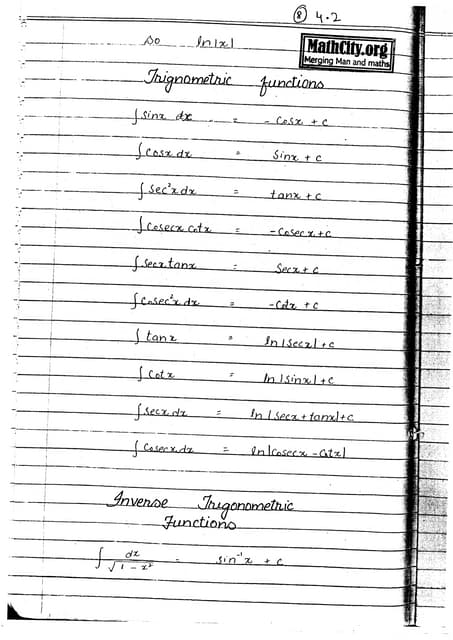 ⑧ 4.2
so ln|x|
MathCity.org
Merging Man and maths
Trignometric functions
∫ sinx dx = - Cosx + c
∫ cosx dx = Sinx + c
∫ Sec²x dx = tanx + c
∫ Cosecx Cotx = - Cosec x + c
∫ Secx tanx = Secx + c
∫ Cosec²x dx = - Cotx + c
∫ tanx = ln |Secx| + c
∫ Cotx = ln |sinx| + c
∫ Secx dx = ln |secx + tanx| + c
∫ Cosecx dx = ln |cosecx - Cotx|
Inverse Trigonometric
Functions
∫ dx / √1 - x² = sin⁻¹x + c